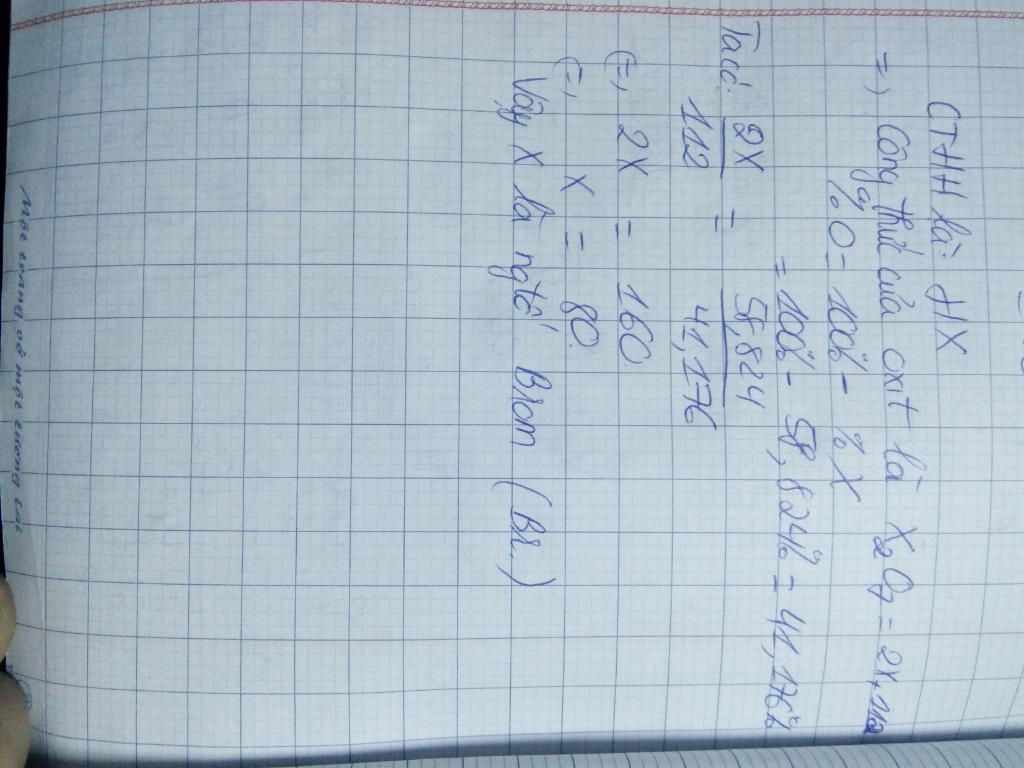 CTHH là: HX
=) Công thức của oxit là X₂O₇ = 2X+112
%O = 100% - %X
= 100% - 58,824% = 41,176%
Ta có: 2X/112 = 58,824/41,176
(=) 2X = 160
(=) X = 80
Vậy X là ngtố Brom (Br)